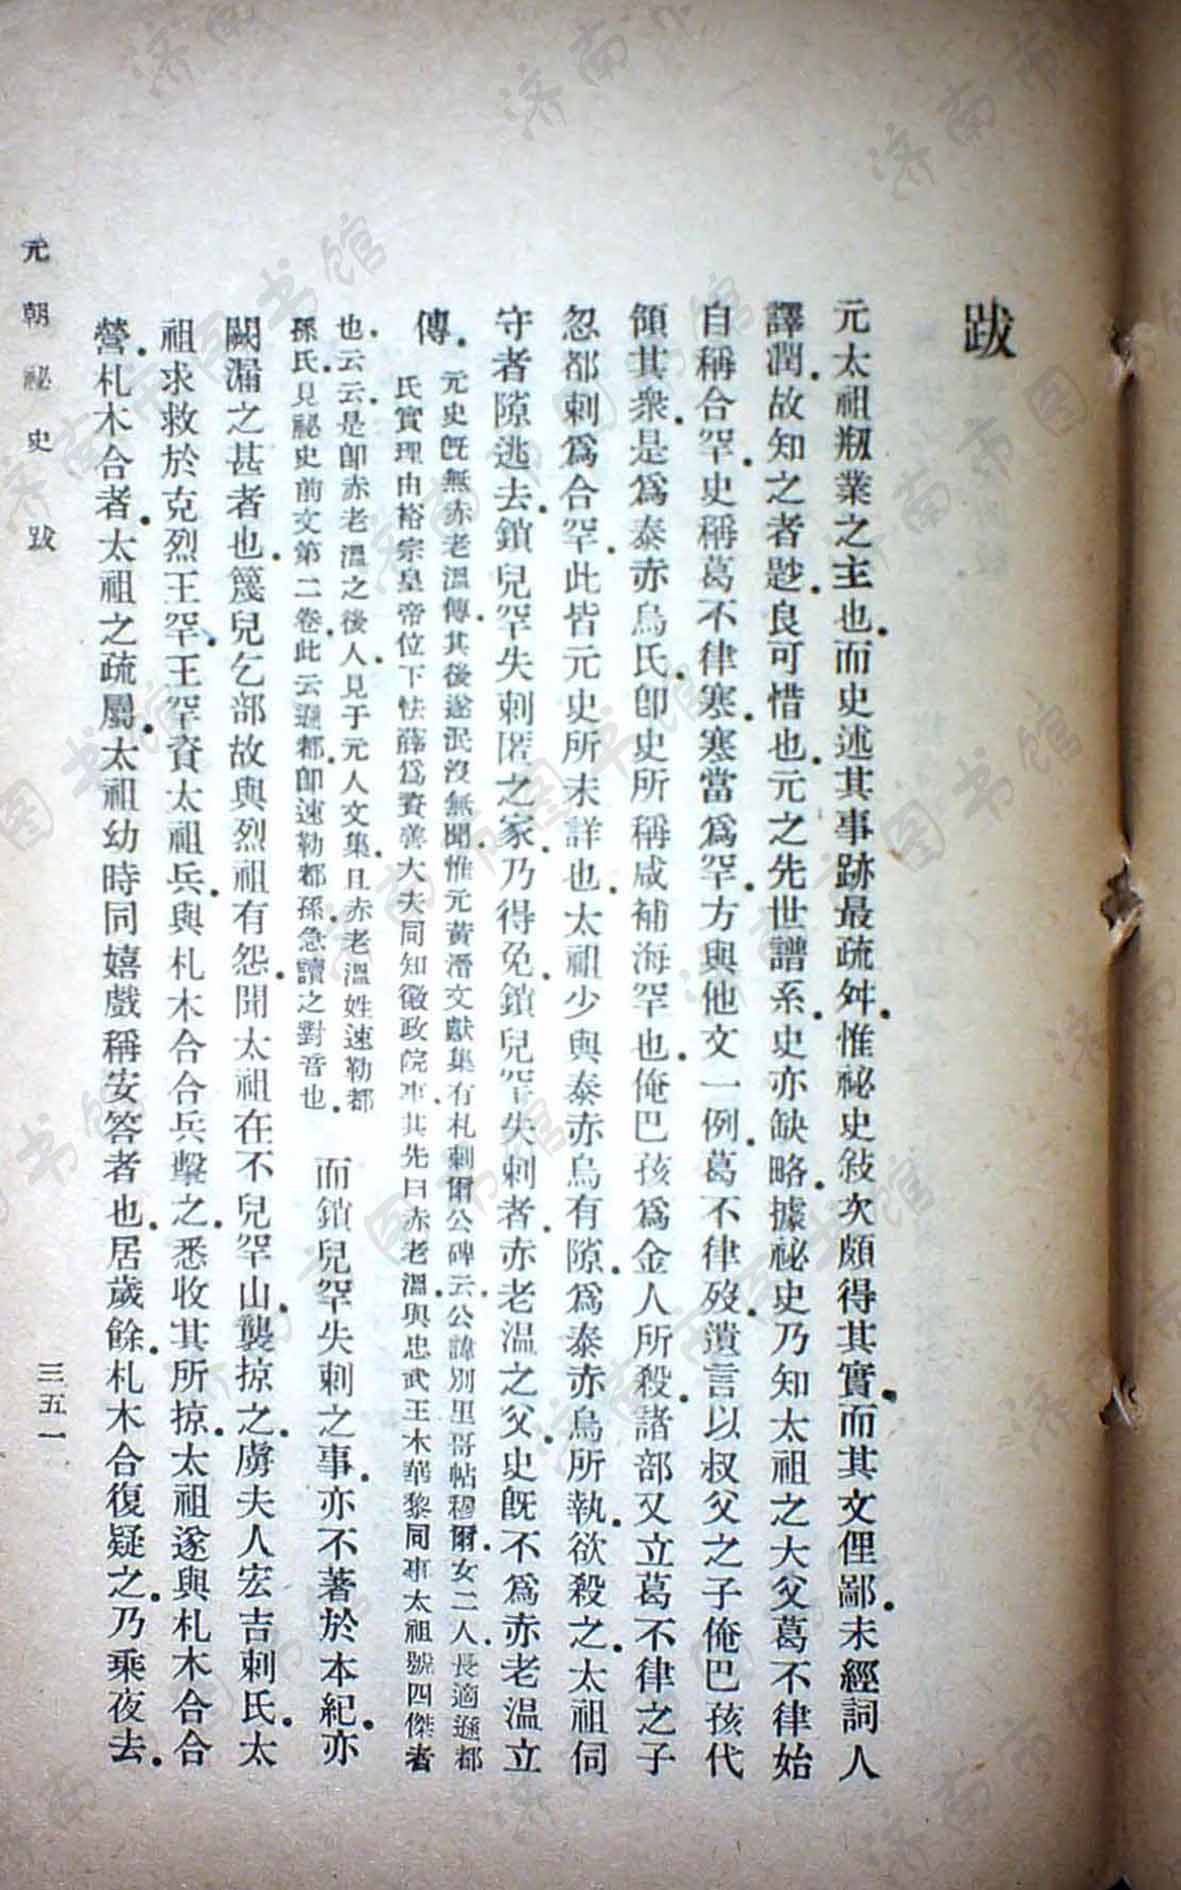 跋
元太祖剏業之主也.而史述其事跡最疏舛.惟祕史敍次頗得其實.而其文俚鄙.未經詞人
譯潤.故知之者尠.良可惜也.元之先世譜系.史亦缺略.據祕史乃知太祖之大父葛不律始
自稱合罕.史稱葛不律寒.寒當爲罕.方與他文一例.葛不律歿.遺言以叔父之子俺巴孩代
領其衆.是爲泰赤烏氏.卽史所稱咸補海罕也.俺巴孩爲金人所殺.諸部又立葛不律之子
忽都剌爲合罕.此皆元史所未詳也.太祖少與泰赤烏有隙.爲泰赤烏所執.欲殺之.太祖伺
守者隙逃去.鎖兒罕失剌匿之家.乃得免.鎖兒罕失剌者.赤老溫之父.史旣不爲赤老溫立
傳.元史旣無赤老溫傳.其後遂泯沒無聞.惟元黃溍文獻集有札剌爾公碑云.公諱別里哥帖穆爾.女二人.長適遜都
氏實理由裕宗皇帝位下怯薛爲資善大夫同知徽政院事.其先曰赤老溫.與忠武王木華黎同事太祖.號四傑者
也.云云.是卽赤老溫之後人.見于元人文集.且赤老溫姓速勒都
孫氏.見祕史前文第二卷.此云遜都.卽速勒都孫.急讀之對音也.
而鎖兒罕失剌之事.亦不著於本紀.亦
闕漏之甚者也.篾兒乞部故與烈祖有怨.聞太祖在不兒罕山.襲掠之.虜夫人宏吉剌氏.太
祖求救於克烈王罕.王罕資太祖兵.與札木合合兵擊之.悉收其所掠.太祖遂與札木合合
營.札木合者.太祖之疏屬.太祖幼時同嬉戲稱安答者也.居歲餘.札木合復疑之.乃乘夜去.
元朝祕史 跋
三五一
济南市图书馆